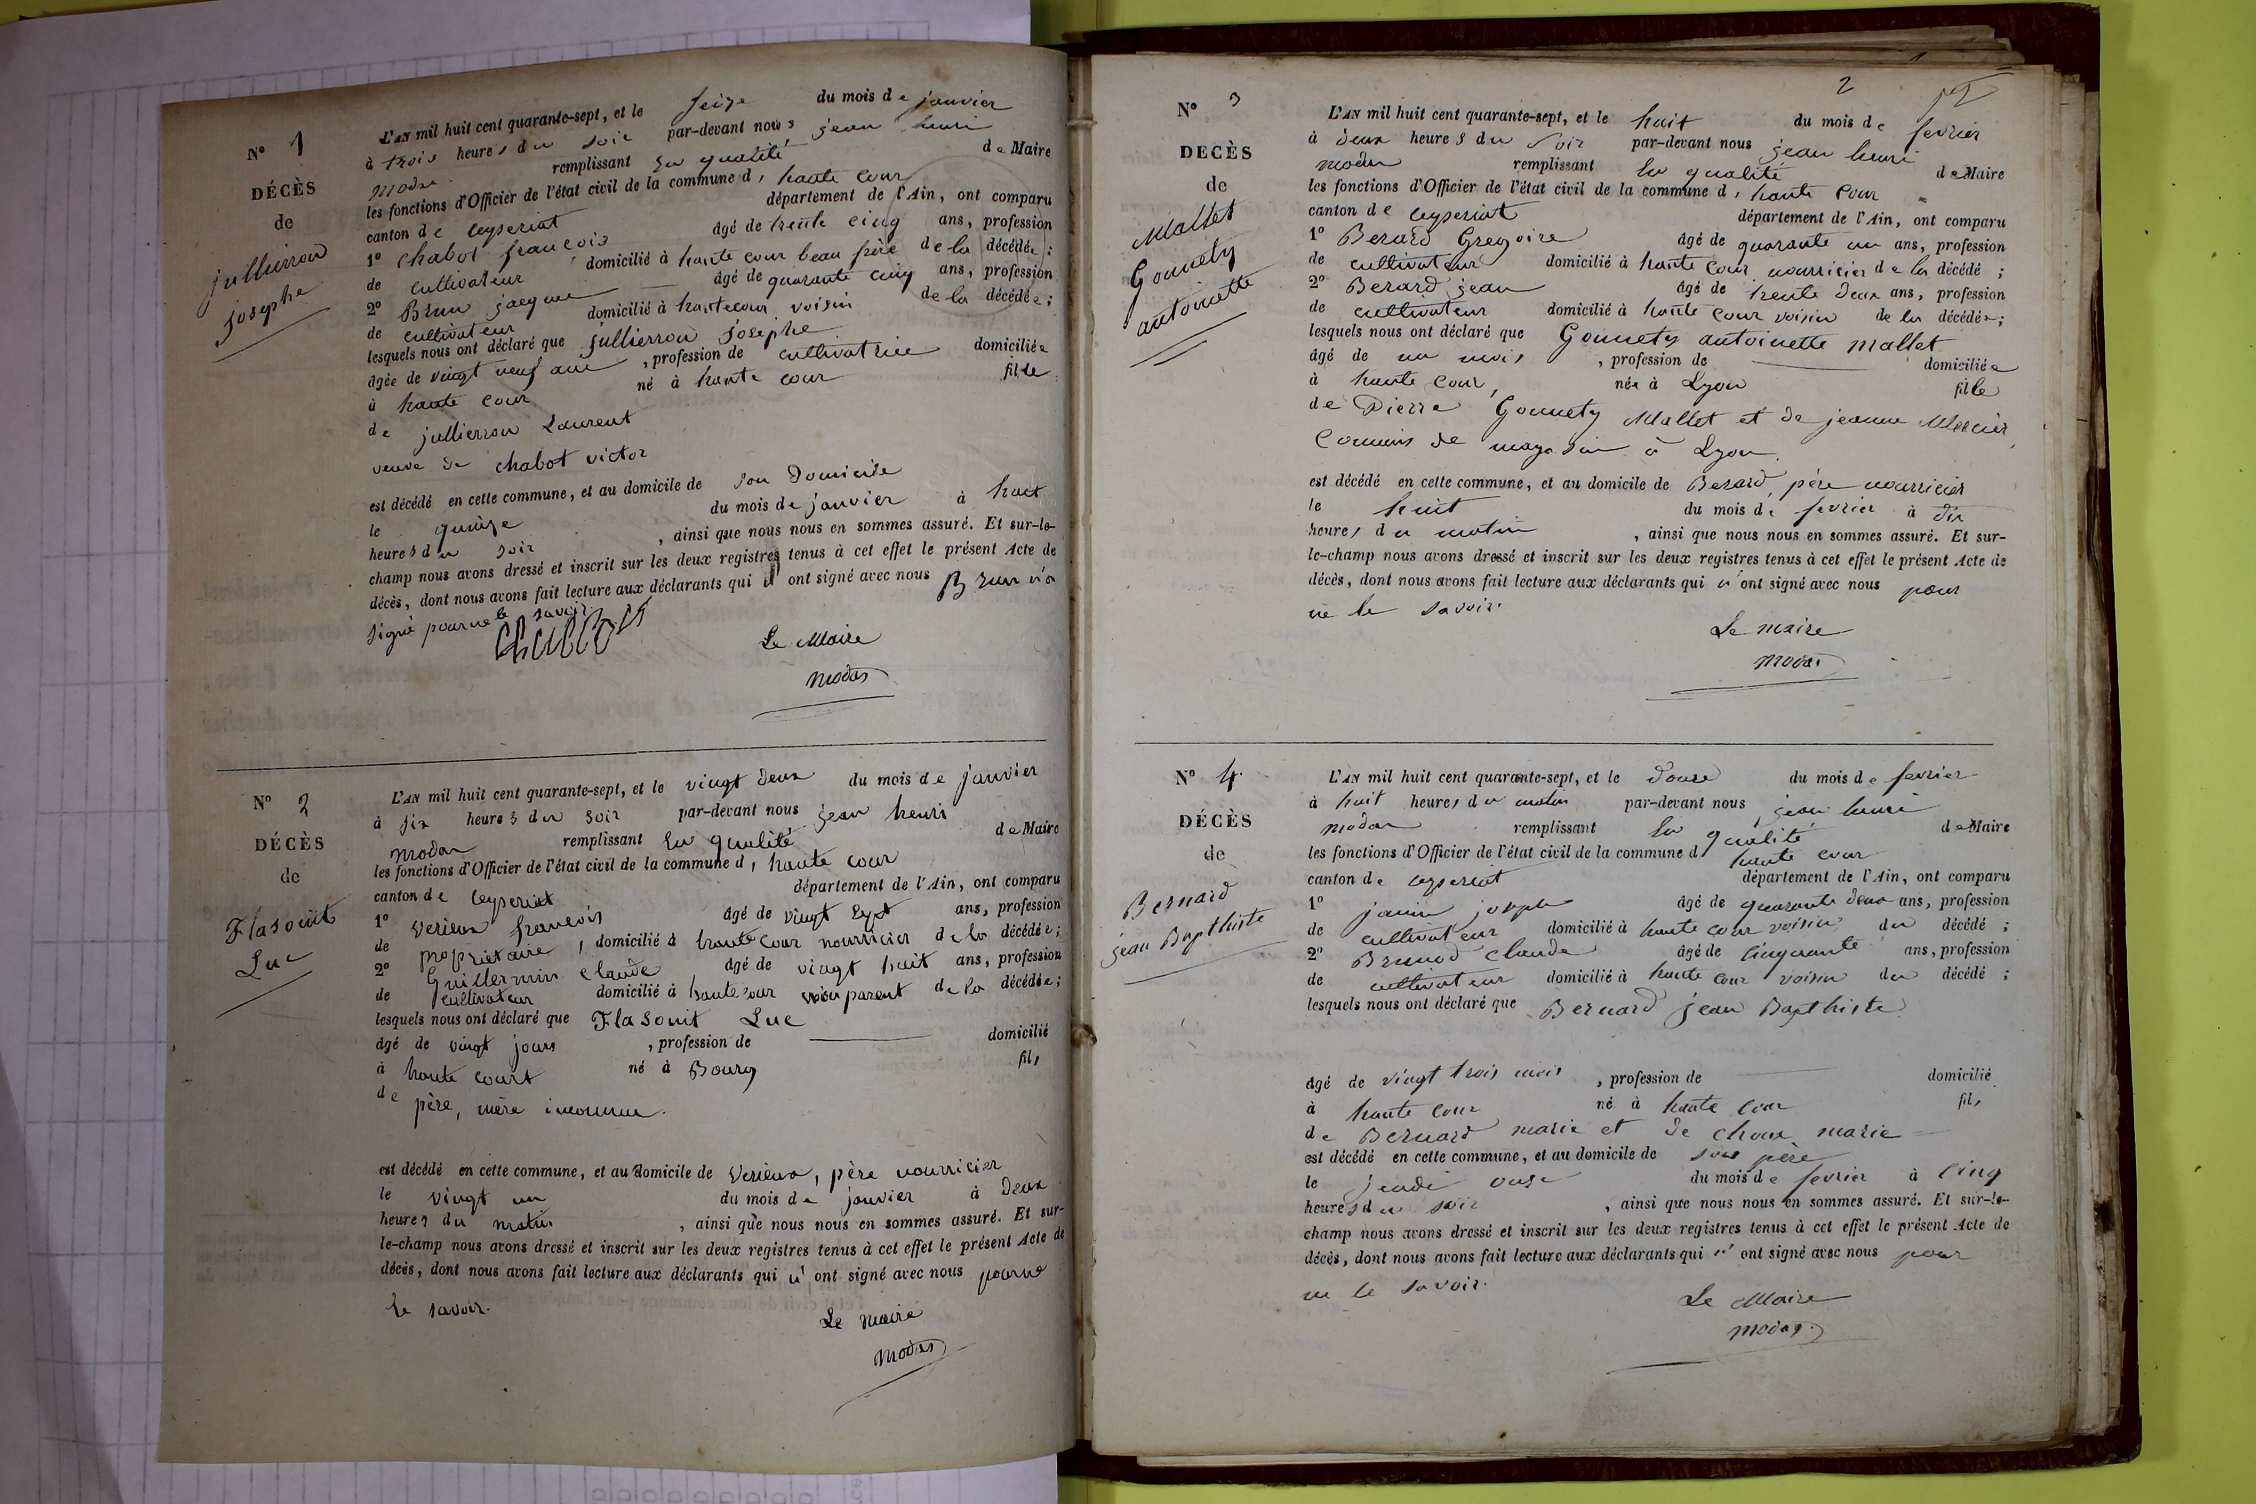 N° 1
DÉCÈS
de
jullierron
josephe
L'AN mil huit cent quarante-sept, et le seize du mois de janvier
à trois heures du soir par-devant nous jean henri
modas remplissant en qualité de Maire
les fonctions d'Officier de l'état civil de la commune d, haute cour
canton de ceyseriat département de l'Ain, ont comparu
1° chabot françois âgé de trente cinq ans, profession
de cultivateur domicilié à haute cour beau frère de la décédée ;
2° Brun jacque âgé de quarante cinq ans, profession
de cultivateur domicilié à hautecour voisin de la décédée ;
lesquels nous ont déclaré que jullierron josephe
âgée de vingt neuf ans , profession de cultivatrice domiciliée
à haute cour né à haute cour fille
de jullierron Laurent
veuve de chabot victor
est décédé en cette commune, et au domicile de son domicile
le quinze du mois de janvier à huit
heures du soir , ainsi que nous nous en sommes assuré. Et sur-le-
champ nous avons dressé et inscrit sur les deux registres tenus à cet effet le présent Acte de
décès, dont nous avons fait lecture aux déclarants qui ont signé avec nous Brun n'a
signé pour ne le savoir
Le Maire
modas
N° 2
DÉCÈS
de
Flasouit
Luc
L'AN mil huit cent quarante-sept, et le vingt deux du mois de janvier
à six heures du soir par-devant nous jean henri
modas remplissant en qualité de Maire
les fonctions d'Officier de l'état civil de la commune d, haute cour
canton de ceyseriat département de l'Ain, ont comparu
1° verieux francois âgé de vingt sept ans, profession
de propriétaire , domicilié à haute cour nourricier de la décédée ;
2° Guillermin claude âgé de vingt huit ans, profession
de cultivateur domicilié à haute cour parent de la décédée ;
lesquels nous ont déclaré que Flasouit Luc
âgé de vingt jours , profession de domicilié
à haute court né à Bourg fils
de père, mère inconnue.
est décédé en cette commune, et au domicile de verieux, père nourricier
le vingt un du mois de janvier à deux
heures du matin , ainsi que nous nous en sommes assuré. Et sur-
le-champ nous avons dressé et inscrit sur les deux registres tenus à cet effet le présent Acte de
décès, dont nous avons fait lecture aux déclarants qui n' ont signé avec nous pour ne
le savoir.
Le maire
modas
2
N° 3
DECÈS
de
Mallet
Gonnety
antoinette
L'AN mil huit cent quarante-sept, et le huit du mois de fevrier
à deux heures du soir par-devant nous jean henri
modas remplissant en qualité de Maire
les fonctions d'Officier de l'état civil de la commune d, haute cour
canton de ceyseriat département de l'Ain, ont comparu
1° Berard Gregoire âgé de quarante un ans, profession
de cultivateur domicilié à haute cour nourricier de la décédé ;
2° Berard jean âgé de trente deux ans, profession
de cultivateur domicilié à haute cour voisin de la décédée ;
lesquels nous ont déclaré que Gonnety antoinette mallet
âgé de un mois , profession de domiciliée
à haute cour, née à Lyon fille
de Pierre Gonnety Mallet et de jeanne Mercier
Commis de magasin à Lyon.
est décédé en cette commune, et au domicile de Berard, père nourricier
le huit du mois de fevrier à dix
heures du matin , ainsi que nous nous en sommes assuré. Et sur-
le-champ nous avons dressé et inscrit sur les deux registres tenus à cet effet le présent Acte de
décès, dont nous avons fait lecture aux déclarants qui n' ont signé avec nous pour
ne le savoir.
Le maire
modas
N° 4.
DÉCÈS
de
Bernard
jean Bapthiste
L'AN mil huit cent quarante-sept, et le douse du mois de fevrier
à huit heures du matin par-devant nous jean henri
modas remplissant en qualité de Maire
les fonctions d'Officier de l'état civil de la commune d haute cour
canton de ceyseriat département de l'Ain, ont comparu
1° janin joseph âgé de quarante deux ans, profession
de cultivateur domicilié à haute cour voisin du décédé ;
2° Brunod claude âgé de cinquante ans, profession
de cultivateur domicilié à haute cour voisin du décédé ;
lesquels nous ont déclaré que Bernard jean Bapthiste
âgé de vingt trois mois , profession de domicilié
à haute cour né à haute cour fils
de Bernard marie et de choux marie
est décédé en cette commune, et au domicile de son père
le jeudi onse du mois de fevrier à cinq
heures du soir , ainsi que nous nous en sommes assuré. Et sur-le-
champ nous avons dressé et inscrit sur les deux registres tenus à cet effet le présent Acte de
décès, dont nous avons fait lecture aux déclarants qui n' ont signé avec nous pour
ne le savoir.
Le Maire
modas